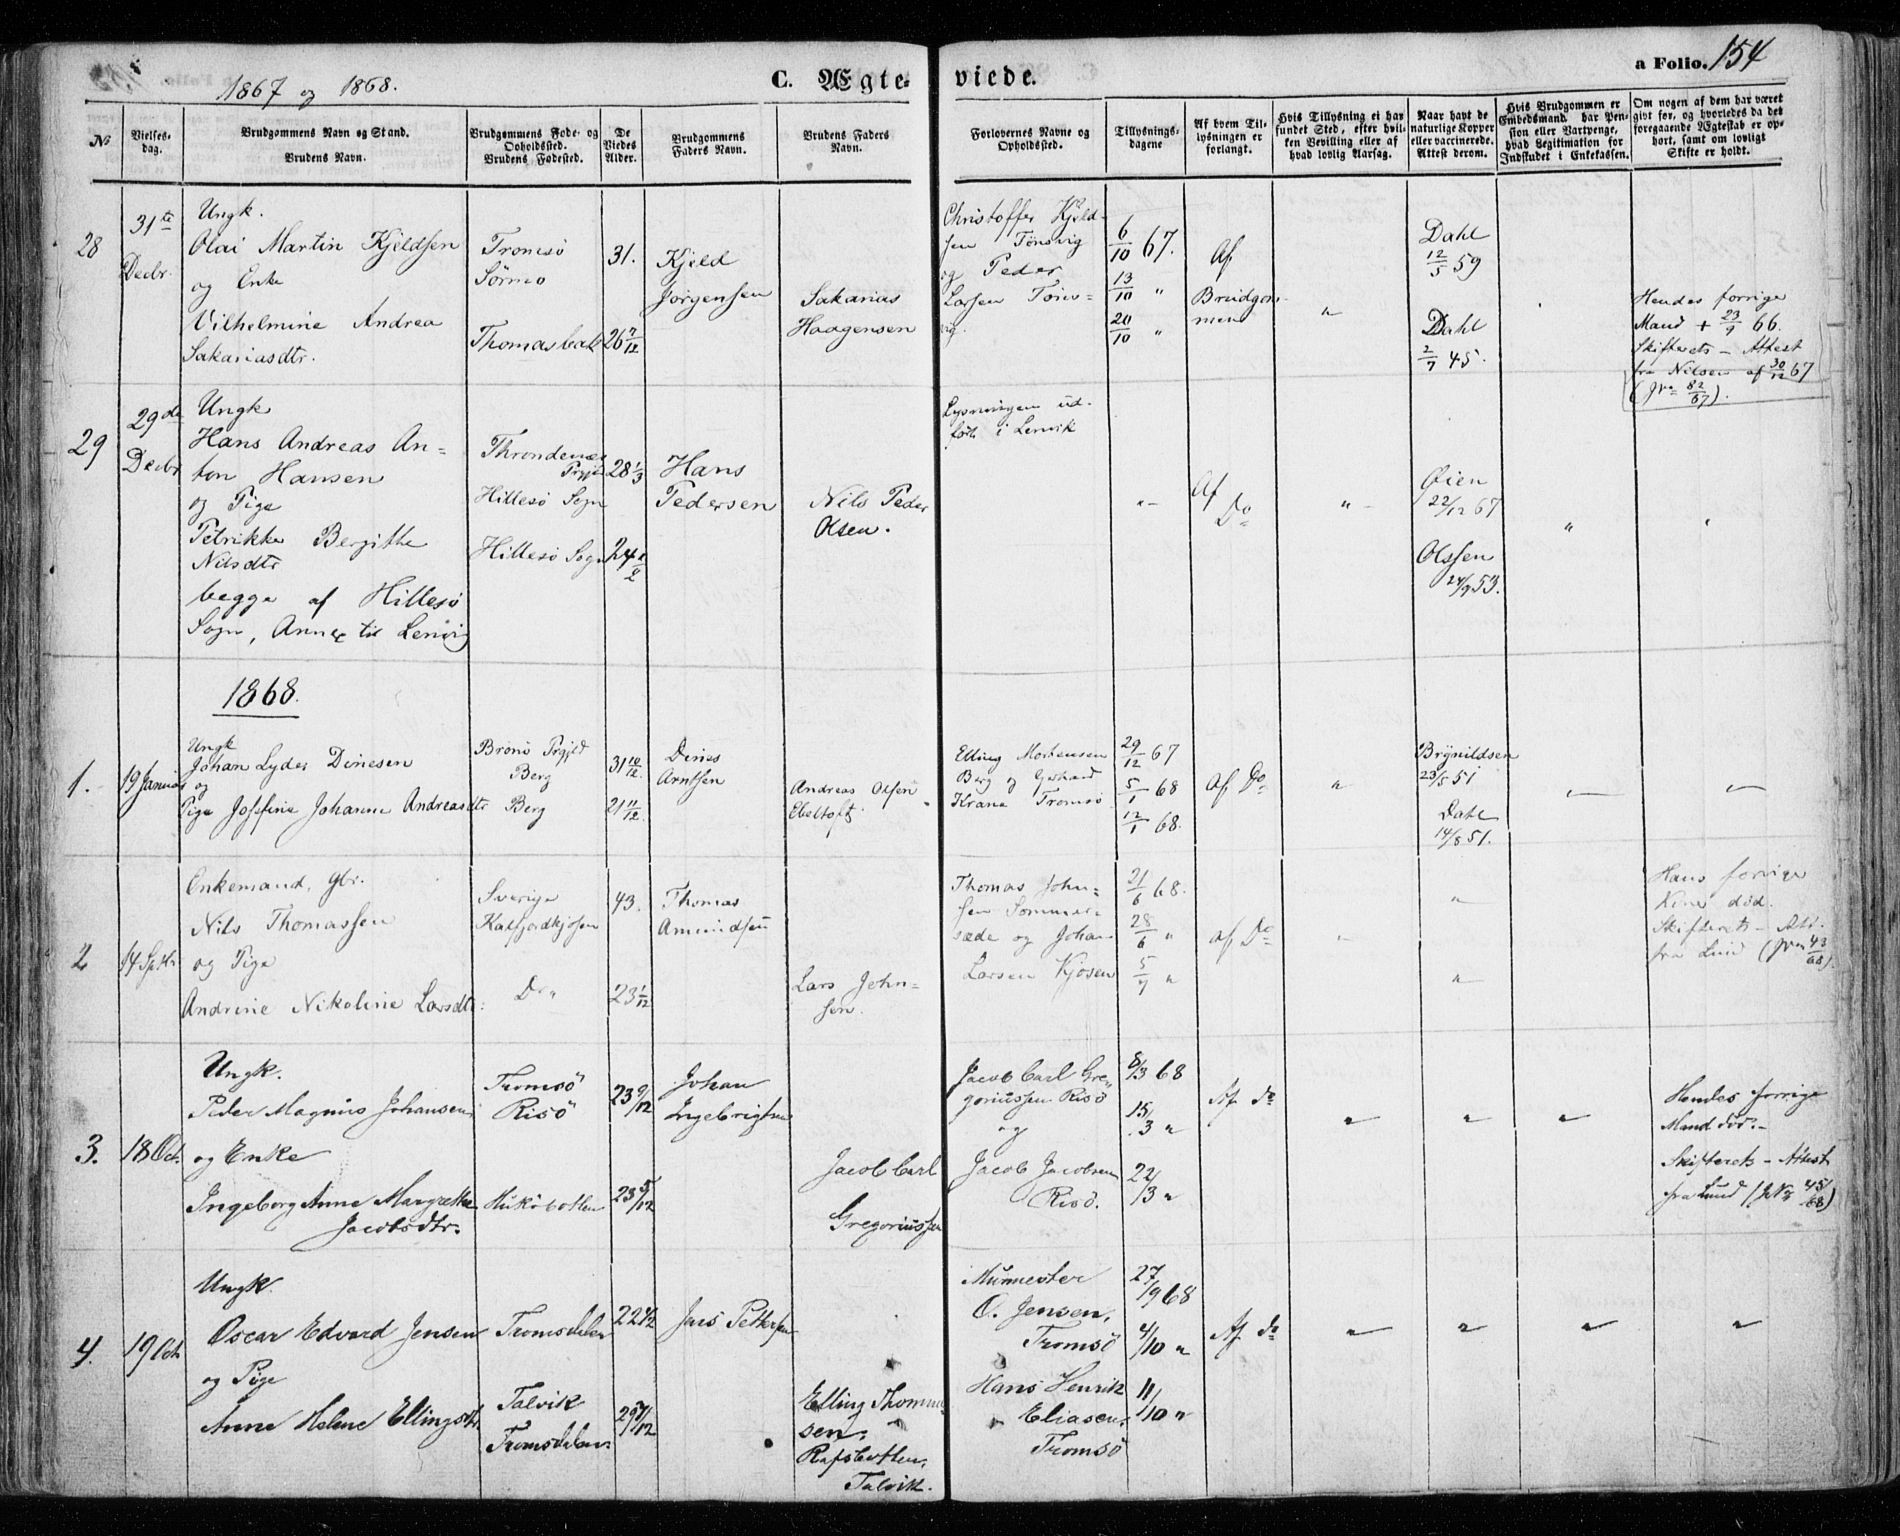 1867 og 1868.
C. Ægte-
viede.
a Folio. 154
No
Vielses-
dag.
Brudgommens Navn og Stand.
Brudens Navn.
Brudgommens Føde- og
Opholdssted.
Brudens Fødested.
De
Viedes
Alder.
Brudgommens
Faders Navn.
Brudens Faders
Navn.
Forlovernes Navne og
Opholdssted.
Tillysnings-
dagene
Af hvem Til-
lysningen er
forlangt.
Hvis Tillysning ei har
fundet Sted, efter hvil-
ken Bevilling eller af
hvad lovlig Aarsag.
Naar havt de
naturlige Kopper
eller vaccinerede.
Attest derom.
Hvis Brudgommen er
Embedsmand har Pen-
sion eller Vartpenge,
hvad Legitimation for
Indskudet i Enkekassen.
Om nogen af dem har været
givt før, og hvorledes da det
foregaaende Ægteskab er op-
hørt, samt om lovligt
Skifte er holdt.
28
31te
Decbr.
Ungk.
Olai Martin Kjeldsen
og Enke
Vilhelmine Andrea
Sakariasdtr.
Tromsö
Sörmo
31.
26 7/12
Kjeld
Jörgensen
Sakarias
Haagensen
Christoffer Kjeld-
sen Tönsvig
og Peder
Larsen Töns-
vig.
6/10 67.
13/10 "
20/10 "
Af
Brudgom-
men
"
Dahl
12/5 59
Dahl
2/7 45.
Hendes forrige
Mand + 23/9 66.
Skifterets - Attest
fra Nilsen af 30/12 67
(Jrn 82/67).
29
29de
Decbr
Ungk
Hans Andreas An-
ton Hansen
og Pige
Petrikke Bergitte
Nilsdtr
begge af Hillesö
Sogn, Annex til Lenvig
Throndenæs
Prgjd
Hillesö Sogn
Hillesö Sogn
28 1/3
24 1/2
Hans
Pedersen
Nils Peder
Olsen.
Lysningen ud-
ført i Lenvik
"-
Af
Do
"-
Øien
22/12 67
Olssen
24/9 53.
"
"
1868.
1.
19 Januar
Ungk
Johan Lyder Dinesen
og
Pige Josefine Johanne Andreasdtr
Brönö Prgjld
Berg
Berg
31 10/12.
21 11/12.
Dines
Arntsen
Andreas Olsen
Ebeltoft.
Elling Mortensen
Berg og Gerhard
Krane Tromsö
29/12 67
5/1 68
12/1 68.
Af Do
"
Brynildsen
23/5 51
Dahl
14/8 51.
"
"
2
14 Septbr
Enkemand, gbr.
Nils Thomassen
og Pige
Andrine Nikoline Larsdtr.
Sverige
Kalfjordkjosen
Do "
43.
23 1/12
Thomas
Amundsen
Lars John-
sen.
Thomas John-
sen Sommer-
sæde og Johan
Larsen Kjosen
21/6 68.
28/6 "
5/7 "
af Do
"
"
"
Hans forrige
Kone död.
Skifterets - Att.
fra Lund (Jrn 43/68).
3.
18 Oct.
Ungk.
Peder Magnus Johansen
og Enke
Ingeborg Anne Margrethe
Jacobsdtr.
Tromsö
Risö
23 9/12
23 5/12
Johan
Ingebrigtsen
Jacob Carl
Gregoriussen
Jacob Carl Gre-
goriussen Risö
og
Jacob Jacobsen
Risö.
8/3 68
15/3 "
22/3 "
Af do
"
"
"
Hendes forrige
Mand död.-
Skifterets - Attest
fra Lund (JNo 45/68)
4.
19 Oct
Ungk.
Oscar Edvard Jensen
og Pige
Anne Helene Ellingsdtr.
Tromsdalen
Talvik
Tromsdalen
29 7/12
Jens Pettersen
Elling Thomas-
sen,
Rafsbotten,
Talvik.
Murmester
O. Jensen,
Tromsö
Hans Henrik
Eliasen,
Tromsö
27/9 68
4/10 "
11/10 "
Af do
"
"
"
"